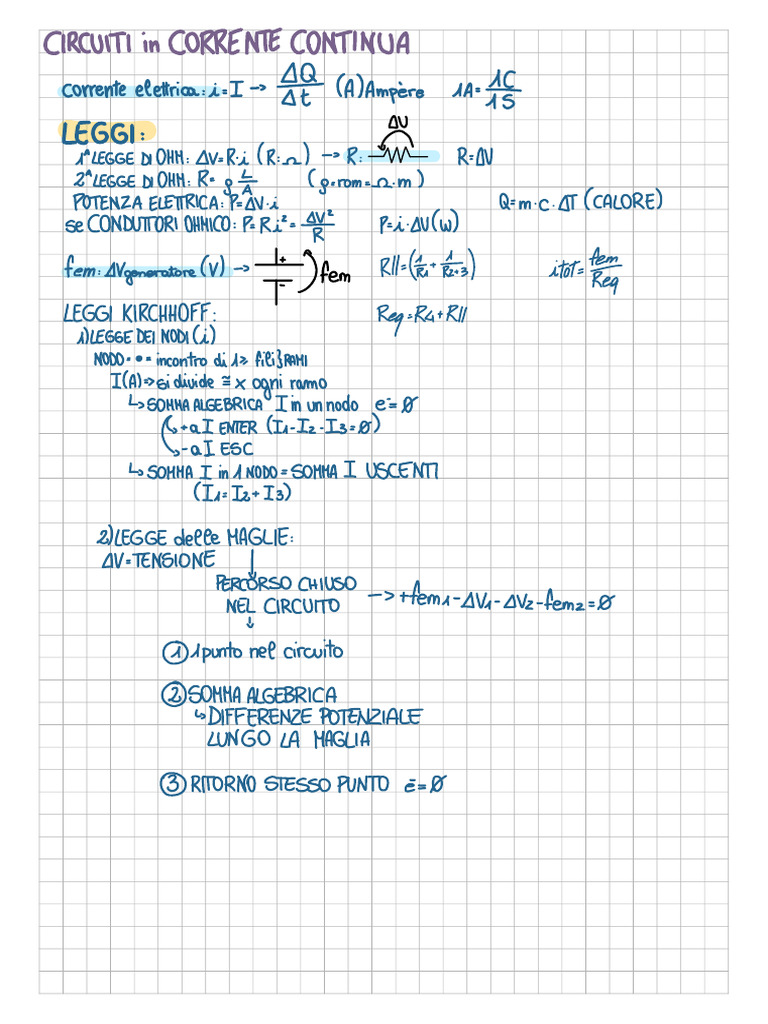 CIRCUITI in CORRENTE CONTINUA
corrente elettrica: i = I -> ΔQ/Δt (A) Ampère 1A = 1C/1S
LEGGI:
ΔU
1ª LEGGE DI OHM: ΔV = R·i (R: Ω) -> R: R = ΔU
2ª LEGGE DI OHM: R = ρ L/A (ρ = rom = Ω·m)
POTENZA ELETTRICA: P = ΔV·i Q = m·c·ΔT (CALORE)
se CONDUTTORI OHMICO: P = R i² = ΔV²/R P = i·ΔU (W)
fem: ΔV generatore (V) -> + - fem R// = (1/R1 + 1/R2+3) i tot = fem/Req
LEGGI KIRCHHOFF: Req = R4 + R//
1) LEGGE DEI NODI (i)
NODO = • = incontro di 1≥ fili } RAMI
I(A) => si divide ≅ x ogni ramo
↳ SOMMA ALGEBRICA I in un nodo e- = Ø
+ a I ENTER (I1 - I2 - I3 = Ø)
- a I ESC
↳ SOMMA I in 1 NODO = SOMMA I USCENTI
(I1 = I2 + I3)
2) LEGGE delle MAGLIE:
ΔV = TENSIONE
PERCORSO CHIUSO
NEL CIRCUITO -> + fem1 - ΔV1 - ΔV2 - fem2 = Ø
① 1 punto nel circuito
② SOMMA ALGEBRICA
↳ DIFFERENZE POTENZIALE
LUNGO LA MAGLIA
③ RITORNO STESSO PUNTO ē = Ø